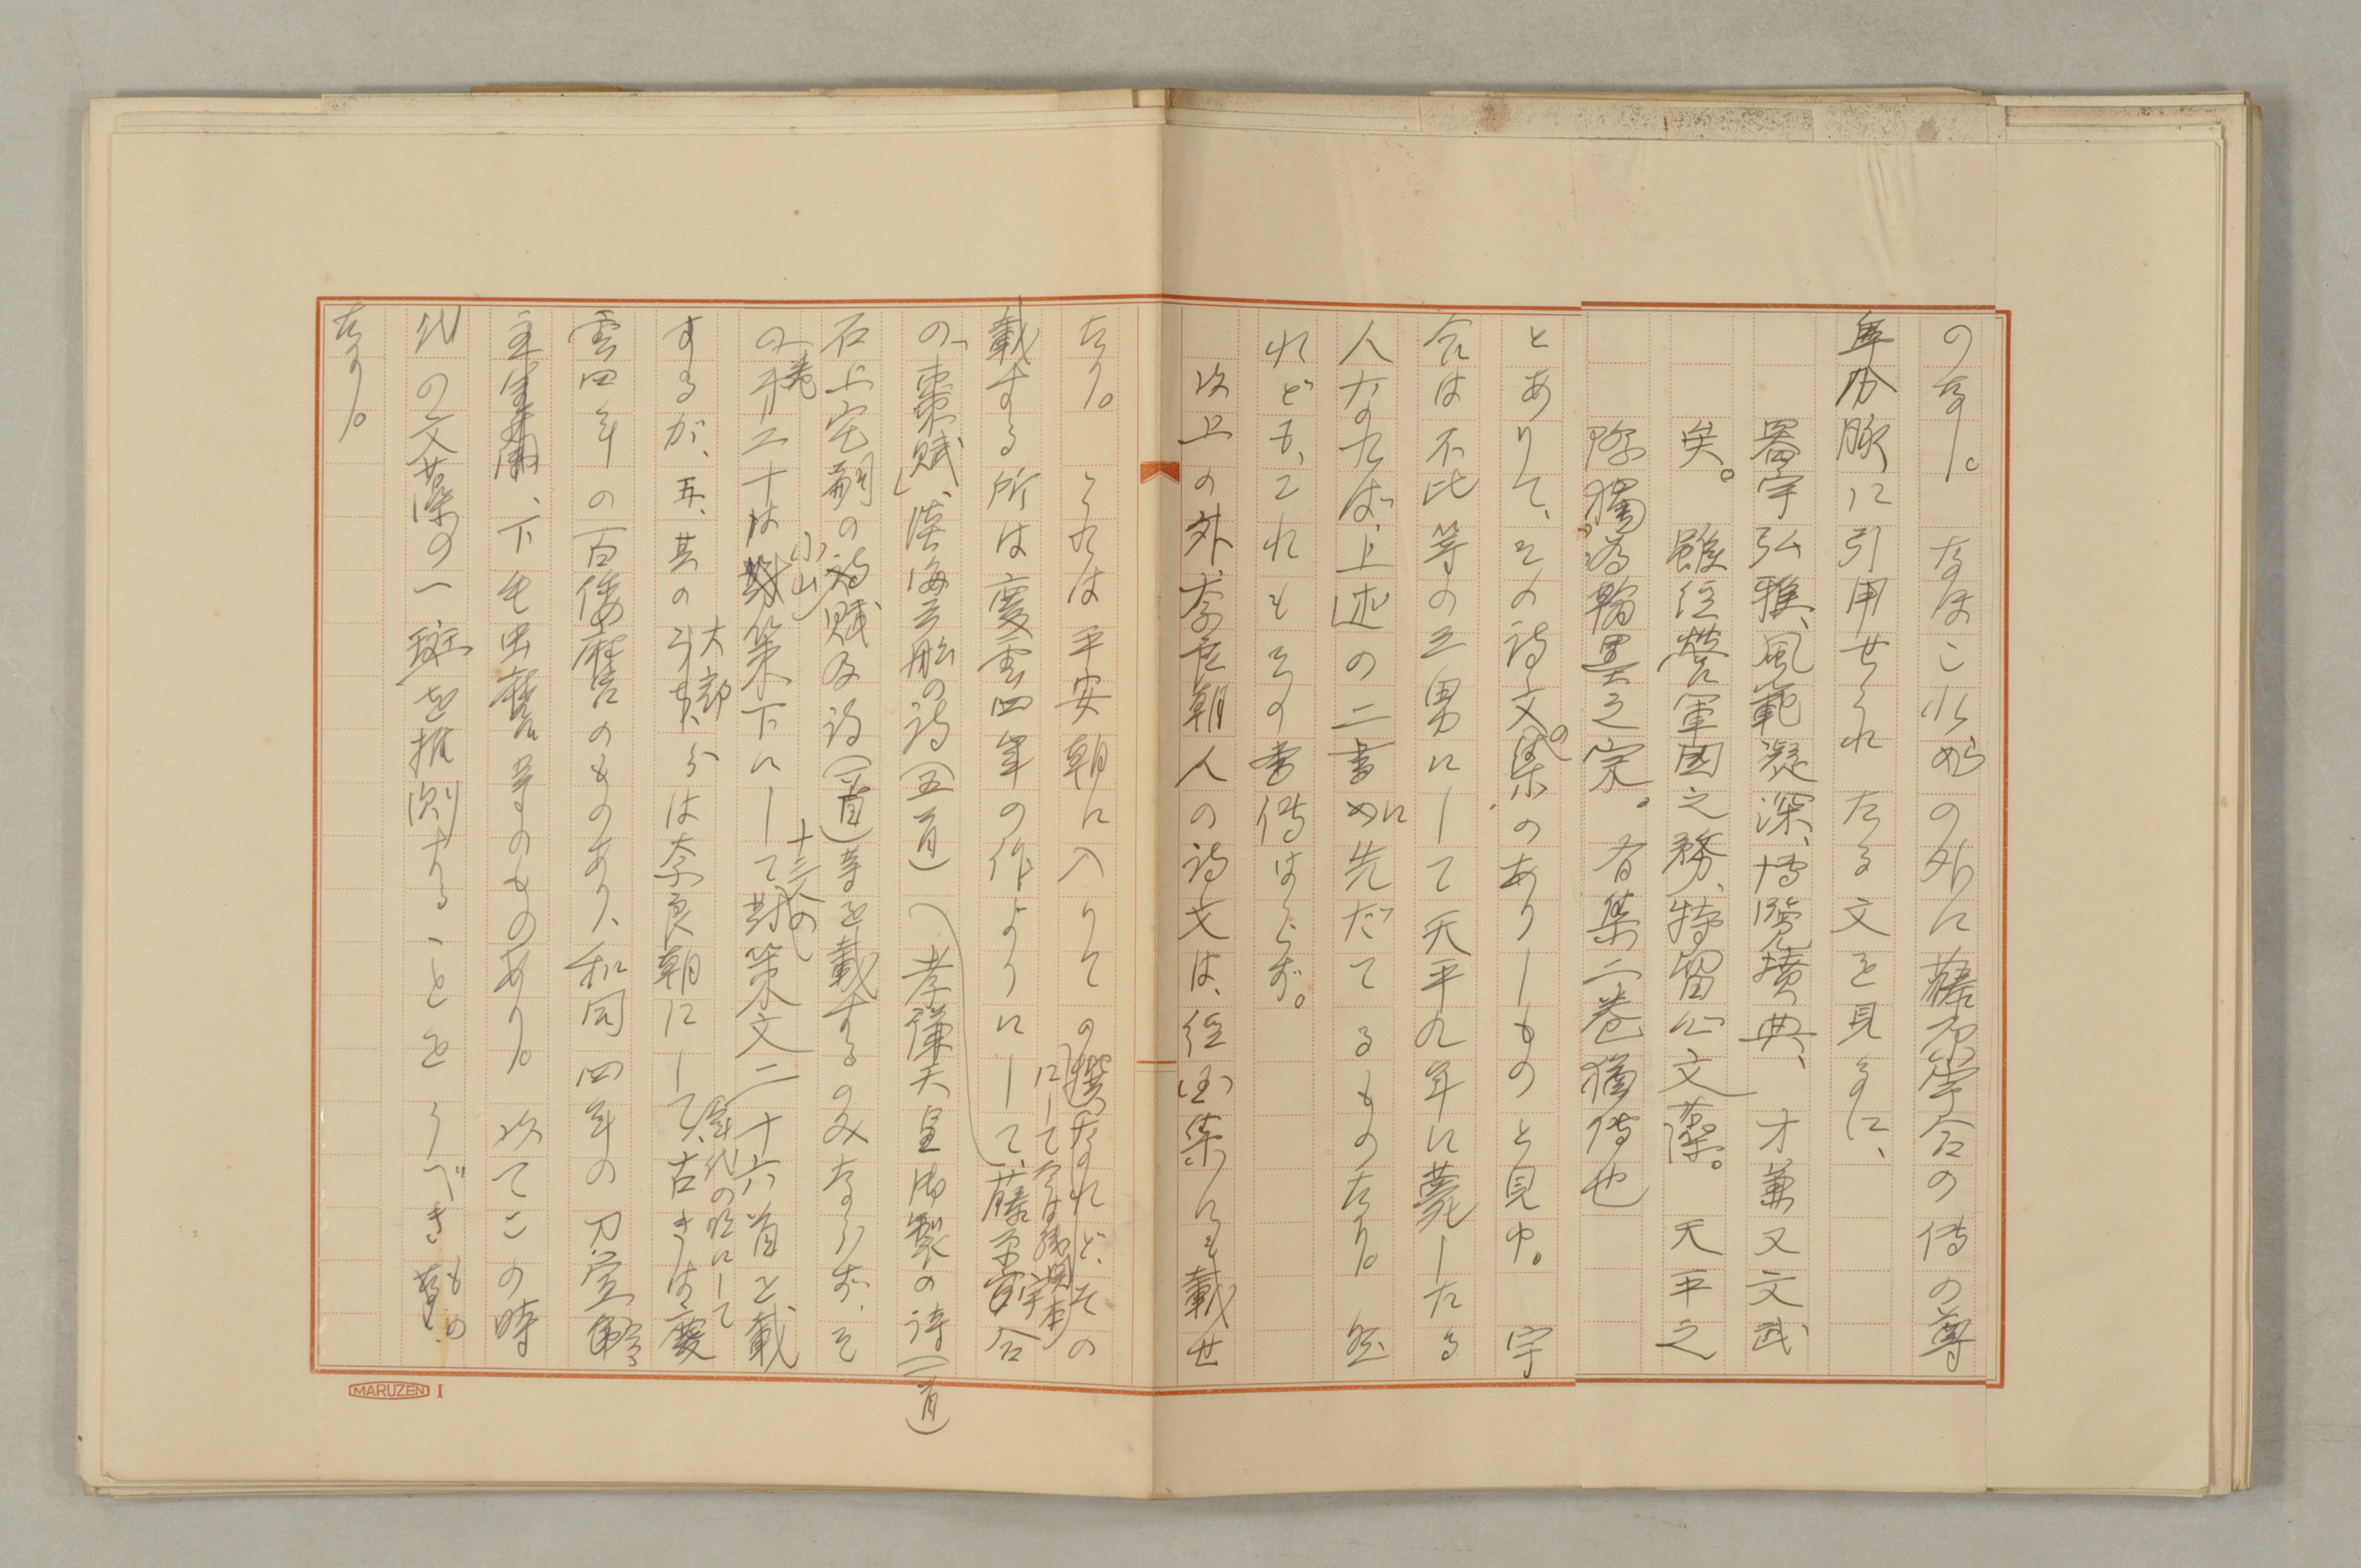 のなり。なほこれらの外に藤原宇合の傳の尊
卑分脈に引用せられたる文を見るに、
器宇弘雅、風範凝深、博覽墳典、才兼又文武
矣。雖經營軍國之務、特留心文藻。天平之
際、獨爲翰墨之宗。有集二卷猶傳也
とありて、その詩文の集のありしものと見ゆ。宇
合は不比等の三男にして天平九年に薨じたる
人なれば、上述の二書に先だてるものなり。然
れども、これもその書傳はらず。
以上の外、奈良朝人の詩文は、經国集にも載せ
たり。これは平安朝に入りての撰なれど、その
載する所は慶雲四年の作よりにして、藤原宇合
にして
の「棗賦」、淡海三船の詩(五首)孝謙天皇御製の詩(一首)
石上宅嗣の小山賦及詩(一首)等を載するのみならず、そ
の卷第二十は對策下にして十三人の對策文二十六首を載
するが、五、其の大部分は奈良朝にして、古きは慶
年代の明にして
雲四年の百倭麿のものあり、和同四年の刀宣令
主金蘭、下毛虫麿等のものあり。以てこの時
代の文藻の一斑を推測することをうべきもの
なり。
MARUZEN I